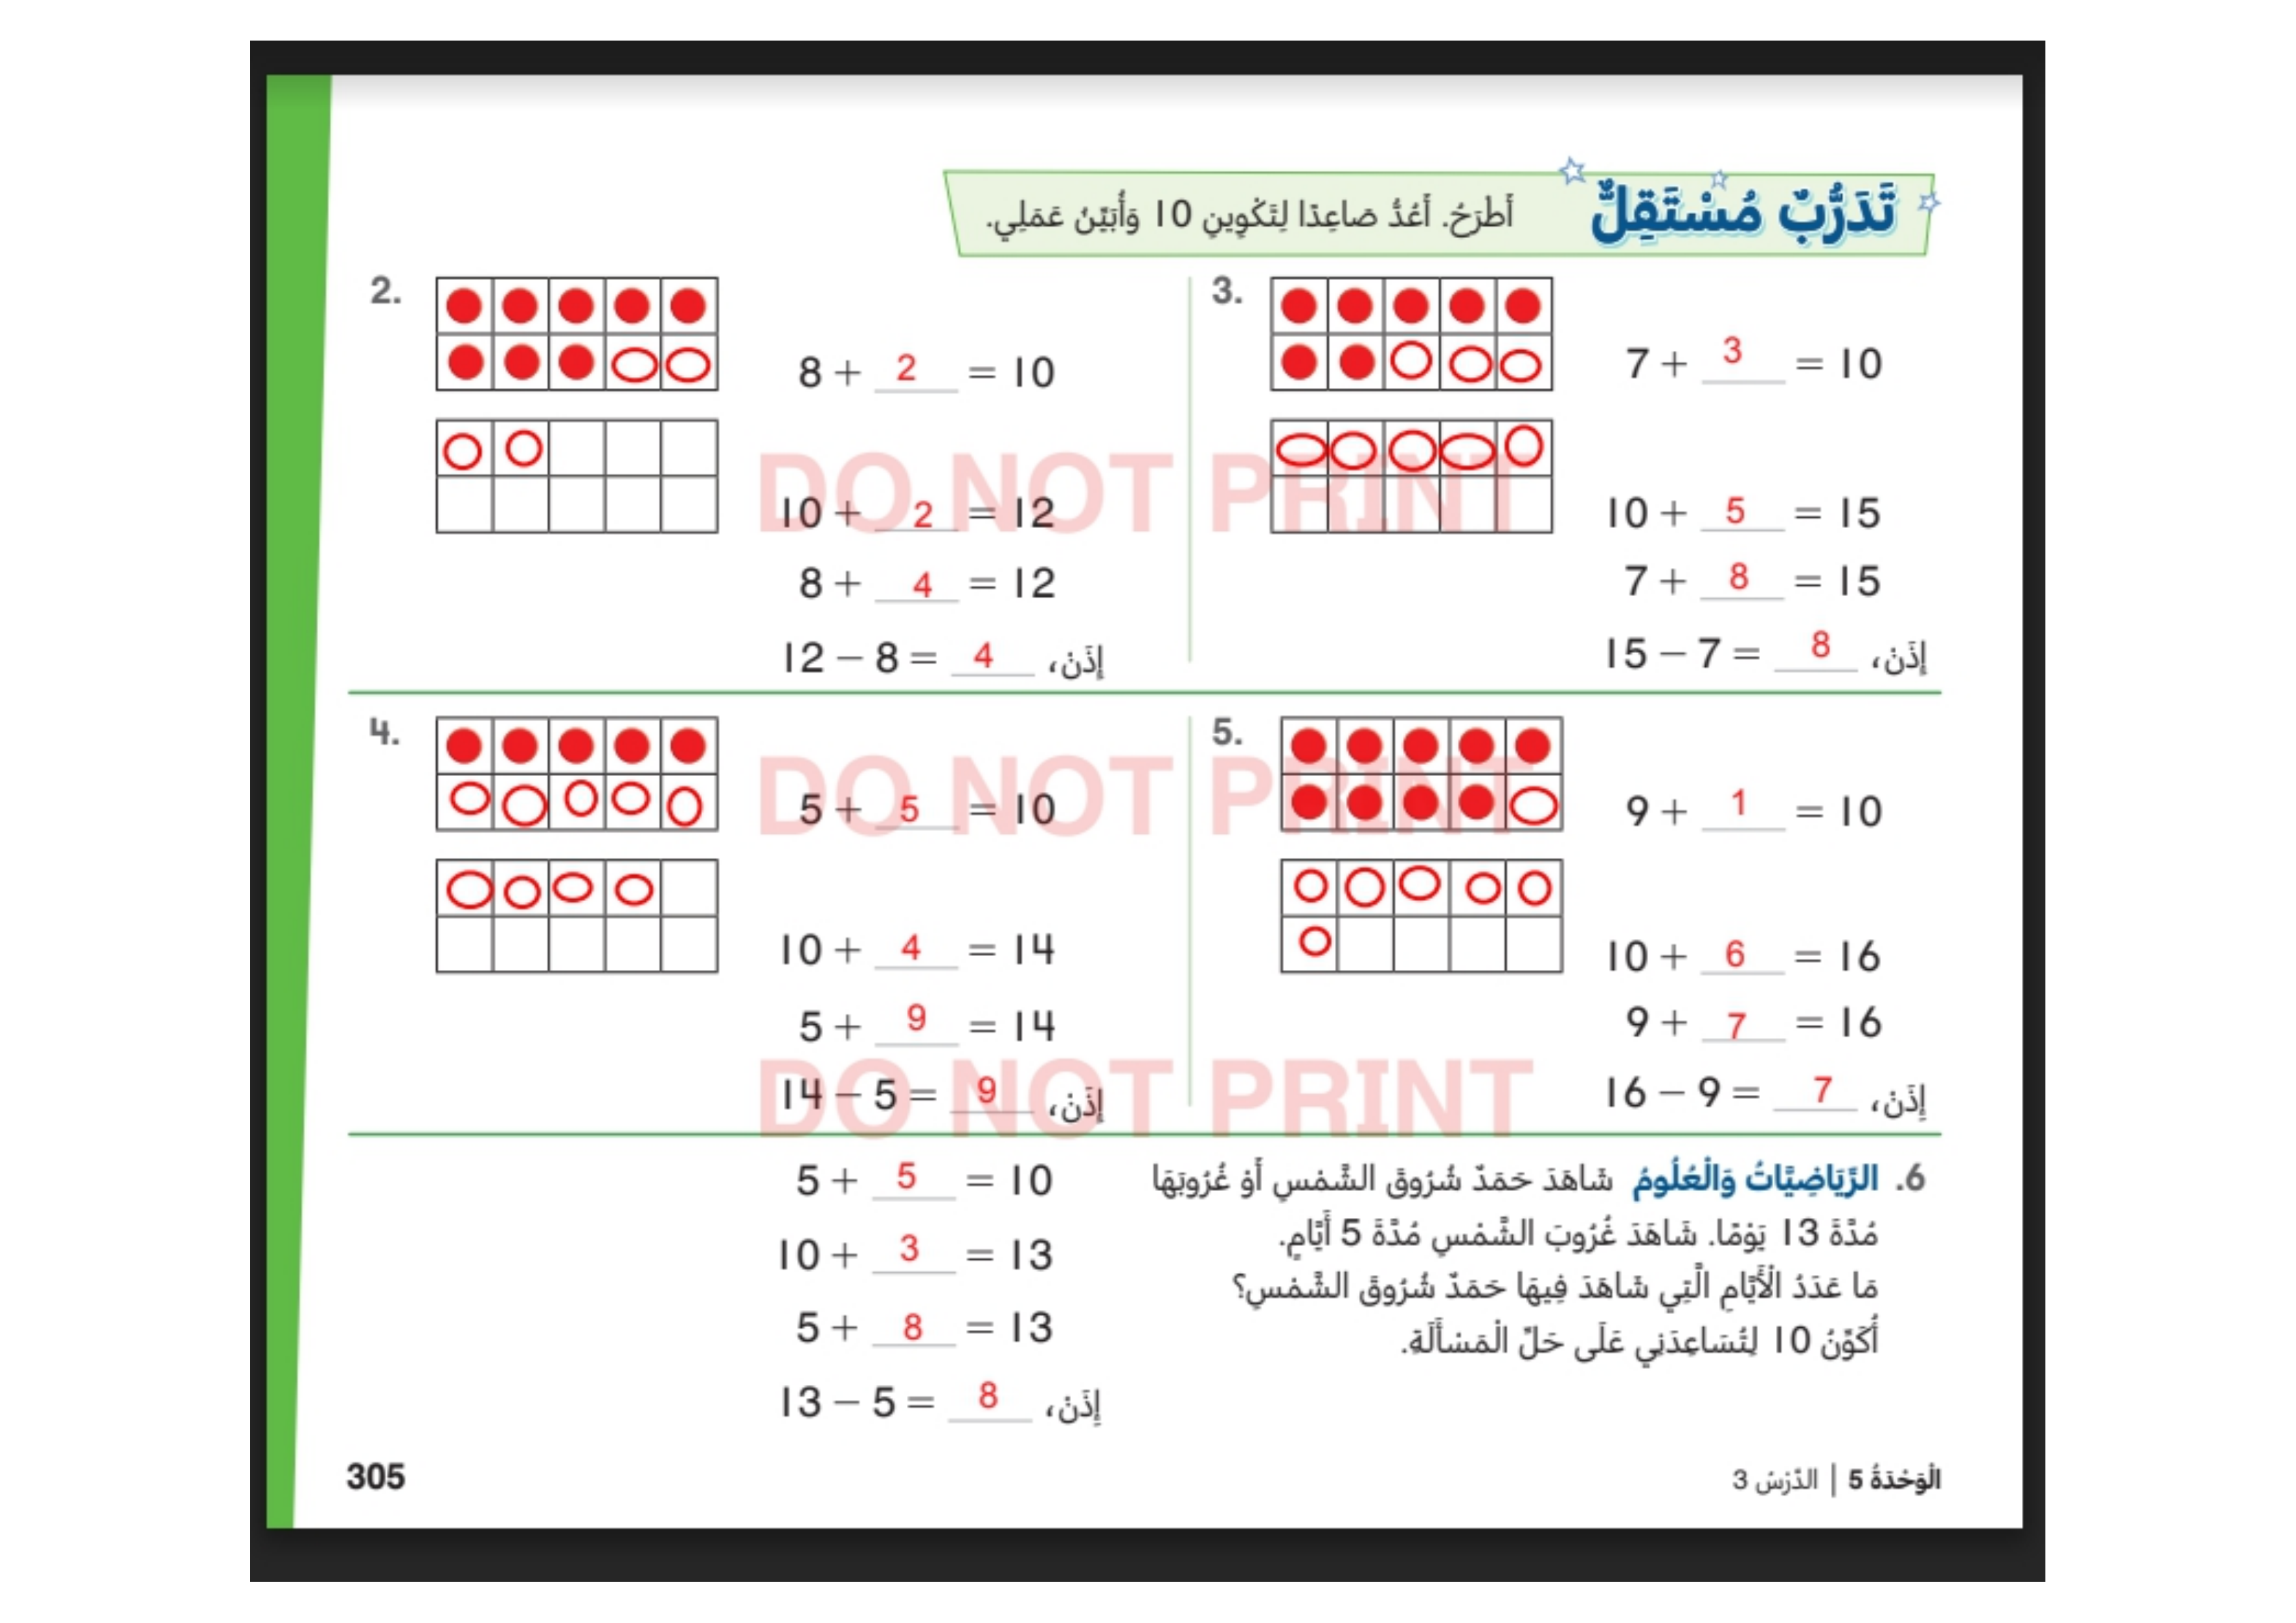 تَدَرُّبٌ مُسْتَقِلٌّ أَطْرَحُ. أَعُدُّ صَاعِدًا لِتَكْوِينِ 10 وَأُبَيِّنُ عَمَلِي.
2.
8 + 2 = 10
10 + 2 = 12
8 + 4 = 12
12 − 8 = 4 إِذَنْ،
3.
7 + 3 = 10
10 + 5 = 15
7 + 8 = 15
15 − 7 = 8 إِذَنْ،
DO NOT PRINT
4.
5 + 5 = 10
10 + 4 = 14
5 + 9 = 14
14 − 5 = 9 إِذَنْ،
5.
9 + 1 = 10
10 + 6 = 16
9 + 7 = 16
16 − 9 = 7 إِذَنْ،
DO NOT PRINT
DO NOT PRINT
6. الرِّيَاضِيَّاتُ وَالْعُلُومُ شَاهَدَ حَمَدٌ شُرُوقَ الشَّمْسِ أَوْ غُرُوبَهَا
مُدَّةَ 13 يَوْمًا. شَاهَدَ غُرُوبَ الشَّمْسِ مُدَّةَ 5 أَيَّامٍ.
مَا عَدَدُ الْأَيَّامِ الَّتِي شَاهَدَ فِيهَا حَمَدٌ شُرُوقَ الشَّمْسِ؟
أُكَوِّنُ 10 لِتُسَاعِدَنِي عَلَى حَلِّ الْمَسْأَلَةِ.
5 + 5 = 10
10 + 3 = 13
5 + 8 = 13
13 − 5 = 8 إِذَنْ،
305
الْوَحْدَةُ 5 | الدَّرْسُ 3